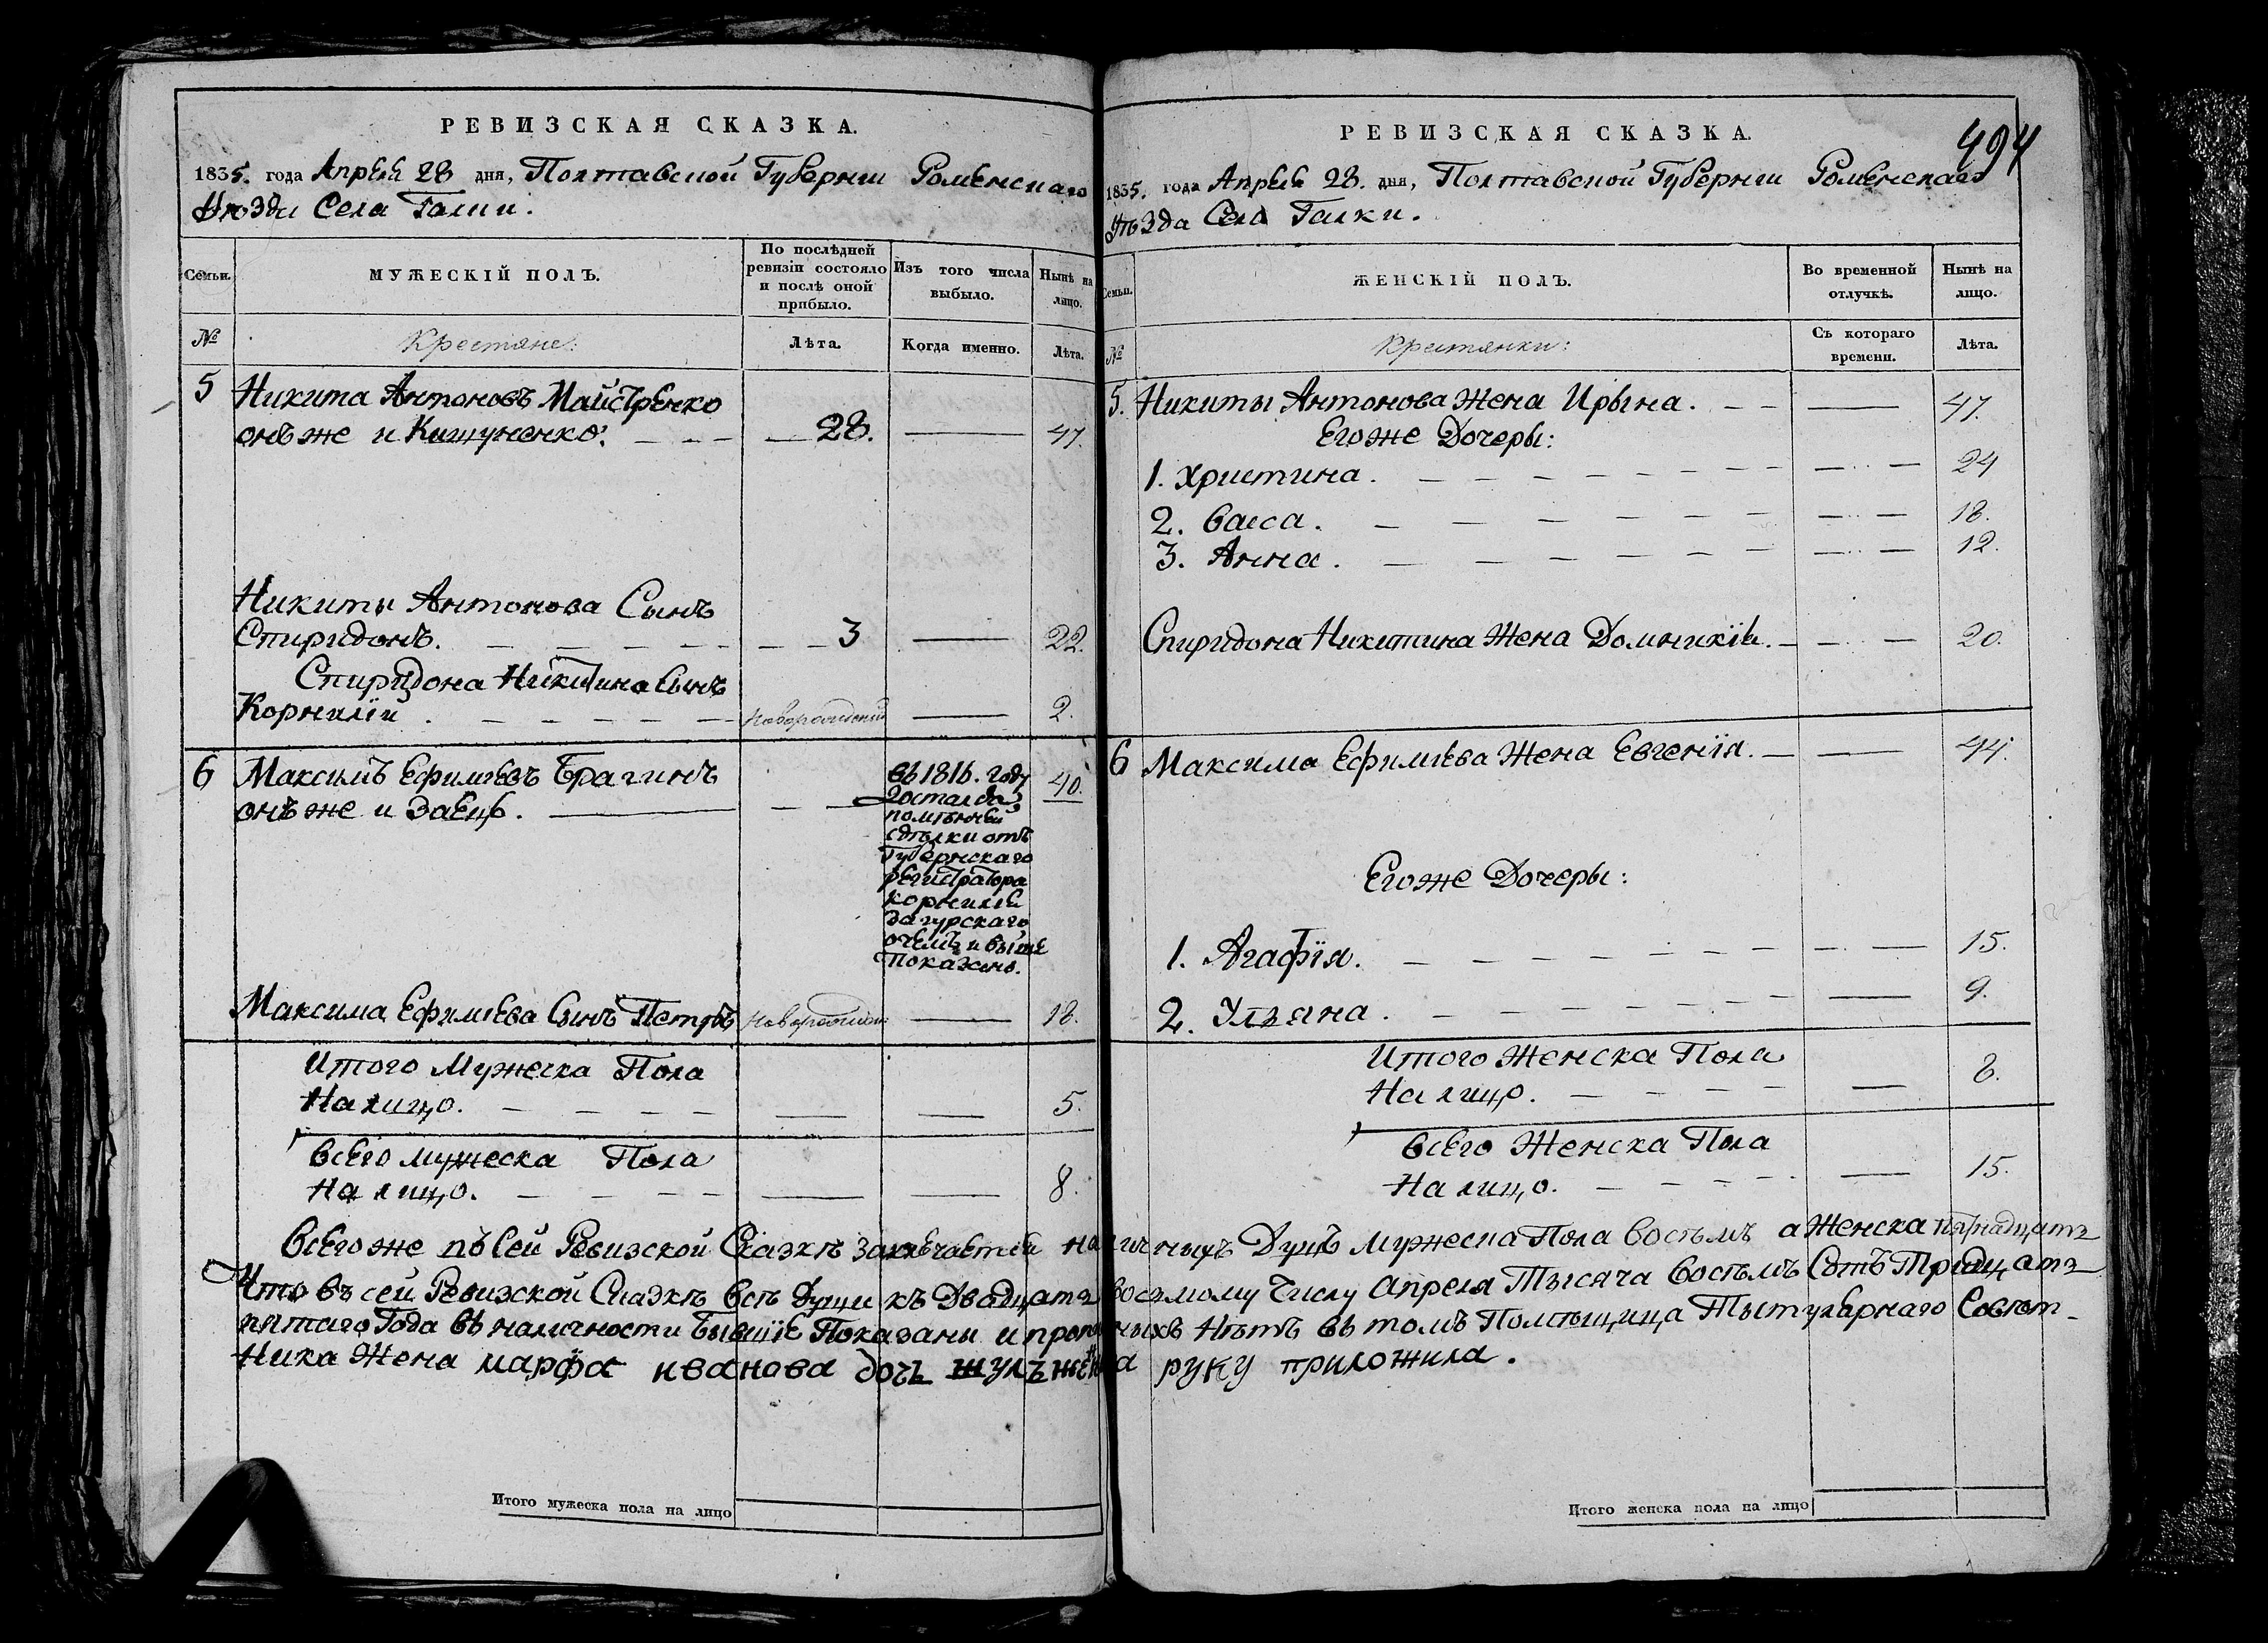 РЕВИЗСКАЯ СКАЗКА.
1835. года Апреля 28 дня, Полтавской Губернии Роменскаго
Уезда Села Галки.
Семьи.
МУЖЕСКІЙ ПОЛЪ.
По послѣдней
ревизіи состояло
и послѣ оной
прибыло.
Изъ того числа
выбыло.
Нынѣ на
лицо.
№
Крестяне:
Лѣта.
Когда именно.
Лѣта.
5 Никита Антоновъ Майстренко
онъ же и Кишуненко. 28. 47.
Никиты Антонова Сынъ
Спиридонъ. 3 22.
Спиридона Никитина Сынъ
Корнилій. Новорожденный 2.
6 Максимъ Ефимьевъ Брагинъ 40.
онъ же и Заецъ.
въ 1816. году
достался
по мѣнчей
сдѣлки отъ
Губернскаго
регистратора
Корнилія
Загурскаго
о чемъ и выше
показано.
Максима Ефимьева Сынъ Петръ Новорожденный 18.
Итого Мужеска Пола
На лицо. 5.
Всего мужеска Пола
На лицо. 8.
РЕВИЗСКАЯ СКАЗКА.
494
1835. года Апреля 28. дня, Полтавской Губернии Роменскаго
Уѣзда Села Галки.
Семьи.
ЖЕНСКІЙ ПОЛЪ.
Во временной
отлучкѣ.
Нынѣ на
лицо.
№
Крестянки:
Съ котораго
времени.
Лѣта.
5. Никиты Антонова Жена Ирына. 47.
Егоже Дочеры:
1. Христина. 24
2. Васса. 18.
3. Анна. 12.
Спиридона Никитина Жена Домникія. 20.
6 Максима Ефимьева Жена Евгенія. 44.
Егоже Дочеры:
1. Агафія. 15.
2. Ульяна. 9.
Итого Женска Пола
На лицо. 8.
Всего Женска Пола
На лицо. 15.
Всего же по сей Ревизской Сказкѣ заключается наличныхъ Душъ мужеска Пола восѣмъ а Женска пятнадцать
Что въ сей Ревизской Сказкѣ всѣ Души къ Двадцать восьмому Числу Апреля Тысяча восѣмъ Сотъ Тридцать
пятаго Года въ наличности бывшіе Показаны и прописныхъ нѣтъ въ томъ Помѣщица Тытулярнаго Совѣт-
ника Жена марфа иванова дочь шулъженка руку приложила.
Итого мужеска пола на лицо
Итого женска пола на лицо